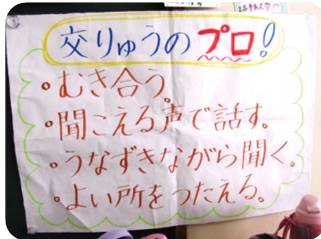 交りゅうのプロ!
・むき合う。
・聞こえる声で話す。
・うなずきながら聞く。
・よい所をつたえる。